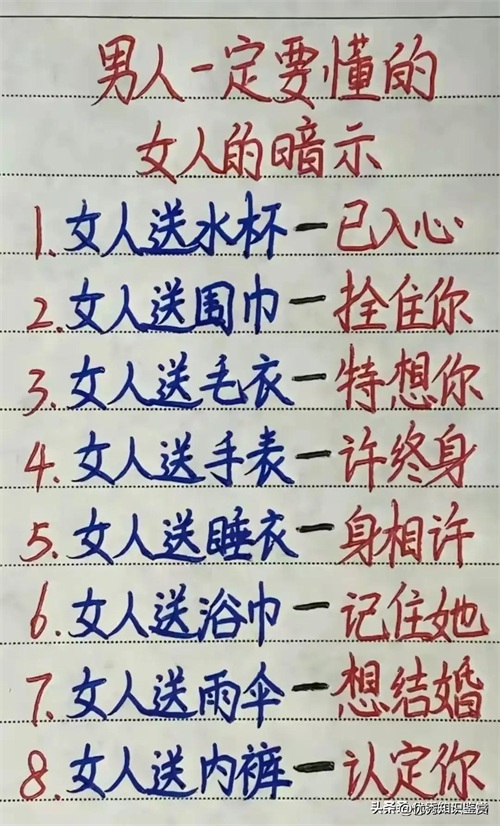 男人一定要懂的
女人的暗示
1.女人送水杯一已入心
2.女人送围巾一拴住你
3.女人送毛衣一特想你
4.女人送手表一许终身
5.女人送睡衣一身相许
6.女人送浴巾一记住她
7.女人送雨伞一想结婚
8.女人送内裤一认定你
头条@优秀知识鉴赏